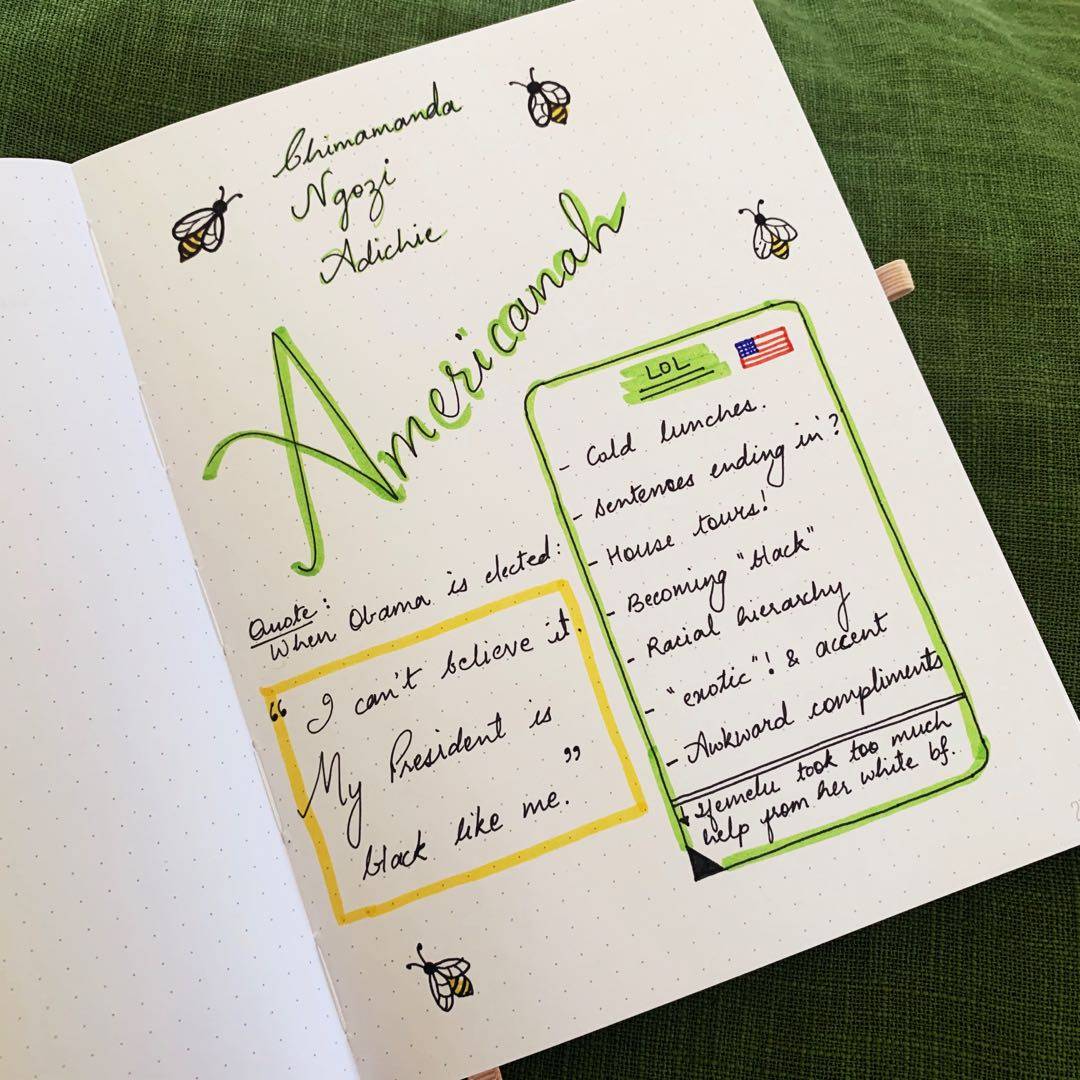 Chimamanda
Ngozi
Adichie
Americanah
LOL
- Cold lunches.
- Sentences ending in'?
- House tours!
- Becoming "black"
- Racial hierarchy
- "exotic"! & accent
- Awkward compliments
↓ Ifemelu took too much
help from her white bf.
Quote:
When Obama is elected:
“ I can't believe it.
My President is
black like me. ”